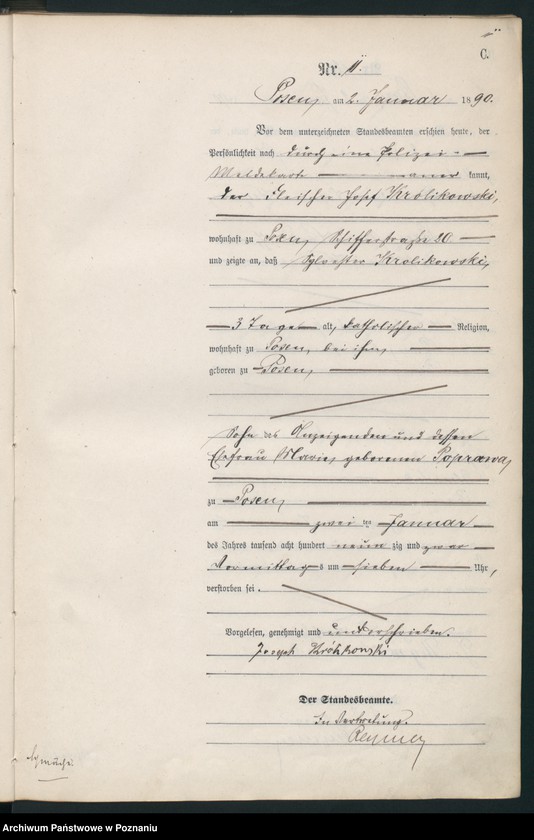 C.
Nr. 11.
Posen, am 2. Januar 1890.
Vor dem unterzeichneten Standesbeamten erschien heute, der
Persönlichkeit nach durch eine Polizei-
Meldekarte anerkannt,
der Fleischer Josef Królikowski,
wohnhaft zu Posen, Schifferstraße 20
und zeigte an, daß Sylvester Krolikowski,
3 Tage alt, katholischer Religion,
wohnhaft zu Posen, bei ihm,
geboren zu Posen,
Sohn des Anzeigenden und dessen
Ehefrau Marie, geborenen Poprawa,
zu Posen,
am zwei ten Januar
des Jahres tausend acht hundert neun zig und zwar
Vormittags um sieben Uhr,
verstorben sei.
Vorgelesen, genehmigt und unterschrieben.
Joseph Królikowski
Der Standesbeamte.
In Vertretung.
Archiwum Państwowe w Poznaniu